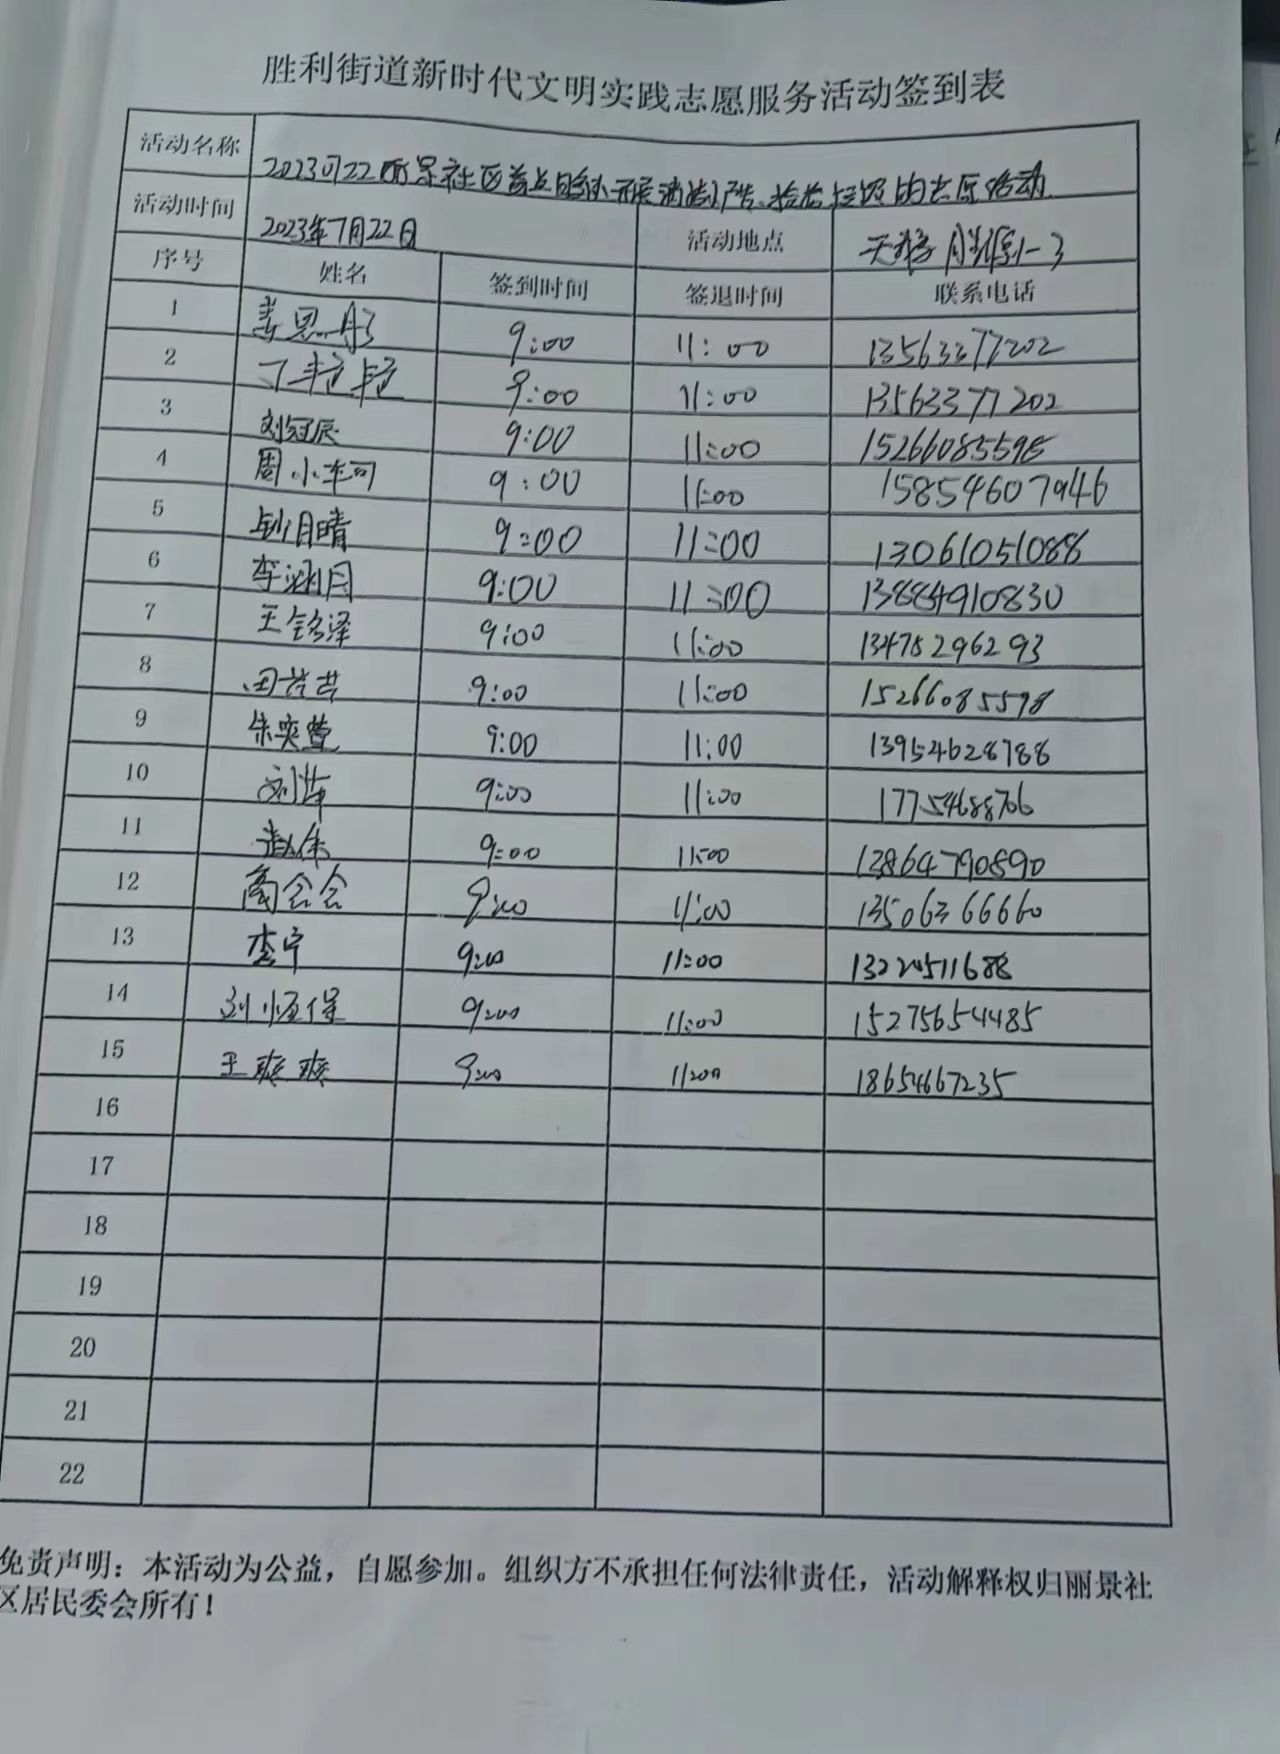 胜利街道新时代文明实践志愿服务活动签到表
活动名称 2023 22 社区 开展清 的志愿活动
活动时间 2023年7月22日 活动地点
序号 姓名 签到时间 签退时间 联系电话
1 姜恩彤 9:00 11:00 13563377202
2 丁 9:00 11:00 13563377202
3 刘冠辰 9:00 11:00 15266085598
4 周小车司 9:00 11:00 15854607946
5 月晴 9:00 11:00 13061051088
6 李涵月 9:00 11:00 13884910830
7 王铭泽 9:00 11:00 13475296293
8 田 9:00 11:00 15266085598
9 朱奕萱 9:00 11:00 13954628788
10 刘 9:00 11:00 17754688766
11 赵伟 9:00 11:00 13864790890
12 商会会 9:00 11:00 13506366660
13 李宁 9:00 11:00
14 刘恒保 9:00 11:00 15275654485
15 王爽爽 9:00 11:00 18654667235
16
17
18
19
20
21
22
免责声明：本活动为公益，自愿参加。组织方不承担任何法律责任，活动解释权归丽景社
区居民委会所有！